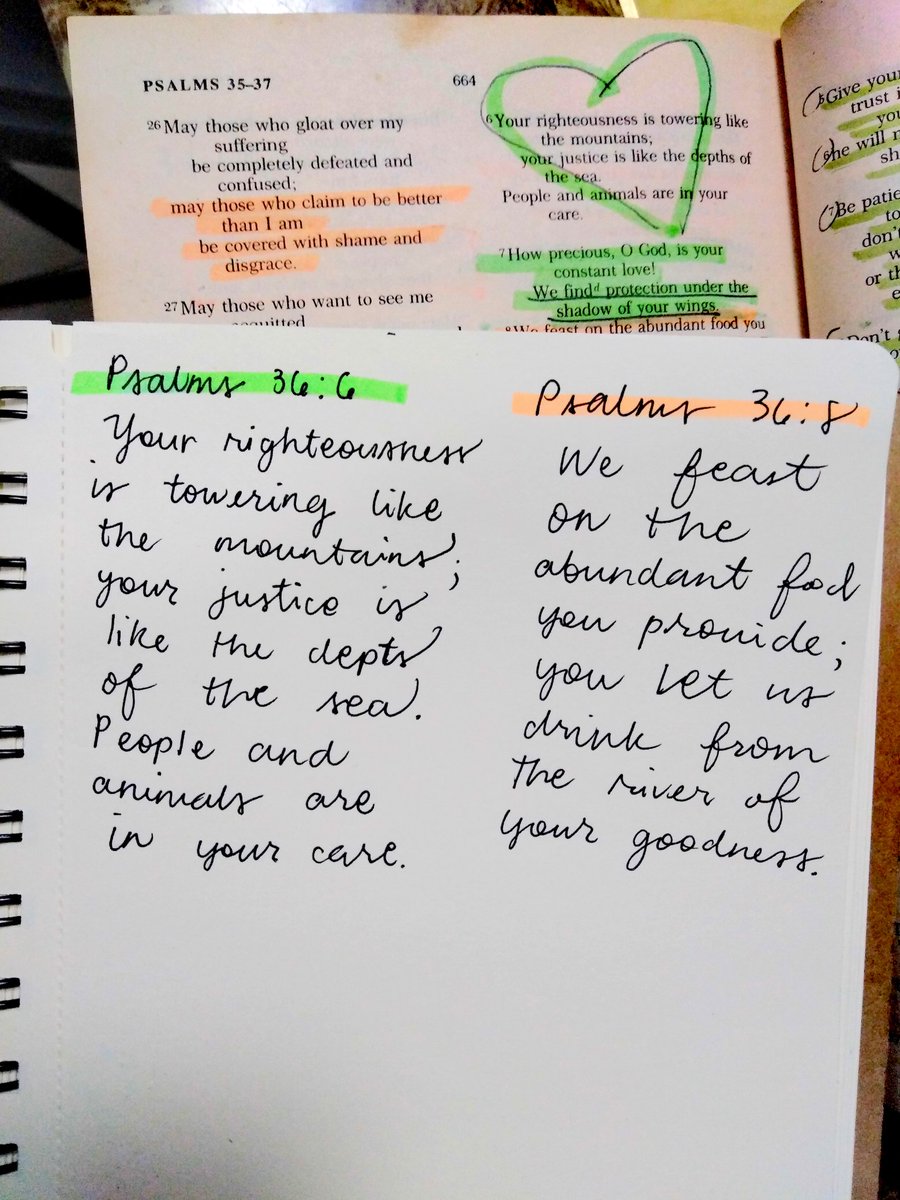 PSALMS 35–37
664
26 May those who gloat over my
suffering
be completely defeated and
confused;
may those who claim to be better
than I am
be covered with shame and
disgrace.
27 May those who want to see me
acquitted
6 Your righteousness is towering like
the mountains;
your justice is like the depths of
the sea.
People and animals are in your
care.
7 How precious, O God, is your
constant love!
We find d protection under the
shadow of your wings.
8 We feast on the abundant food you
5 Give your
trust i
you
6 he will
7 Be patie
to
don't
or th
Psalms 36:6
Your righteousness
is towering like
the mountains;
your justice is
like the depts
of the sea.
People and
animals are
in your care.
Psalms 36:8
We feast
on the
abundant food
you provide;
you let us
drink from
the river of
your goodness.